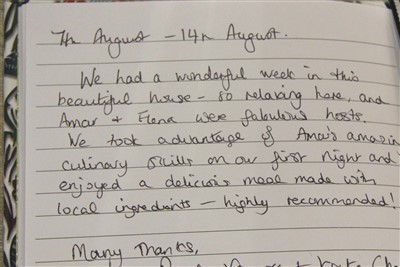 7th August - 14th August.
We had a wonderful week in this
beautiful house - so relaxing here, and
Amar + Elena were fabulous hosts.
We took advantage of Amar's amazing
culinary skills on our first night and
enjoyed a delicious meal made with
local ingredients - highly recommended!
Many Thanks,